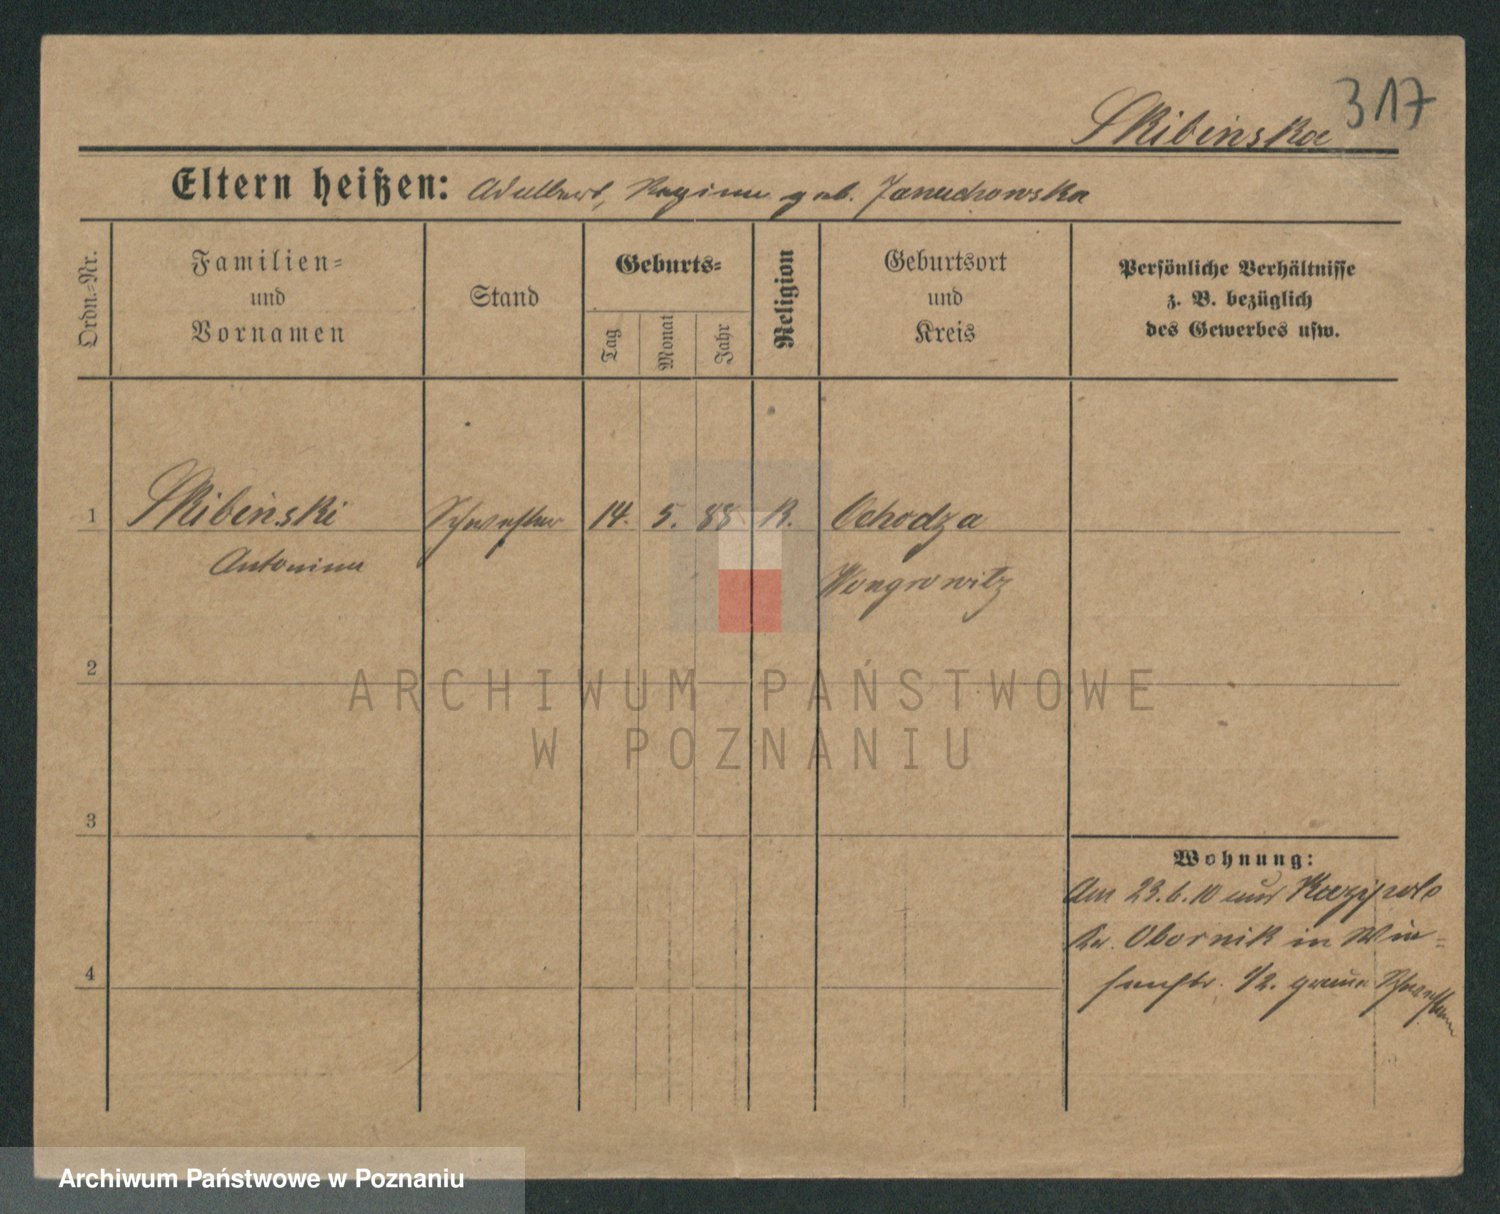 317
Skibinska
Eltern heißen: Adalbert, Regina geb. Januchowska
Ordn.-Nr.
Familien-
und
Vornamen
Stand
Geburts-
Tag
Monat
Jahr
Religion
Geburtsort
und
Kreis
Persönliche Verhältnisse
z. B. bezüglich
des Gewerbes usw.
1 Skibinski Schwester 14. 5. 88 K. Ochodza
Antonina Wongrowitz
2
ARCHIWUM PAŃSTWOWE
W POZNANIU
3
Wohnung:
Am 23.6.10 aus
Kr. Obornik in Win-
1/2. graue Schwestern
4
Archiwum Państwowe w Poznaniu